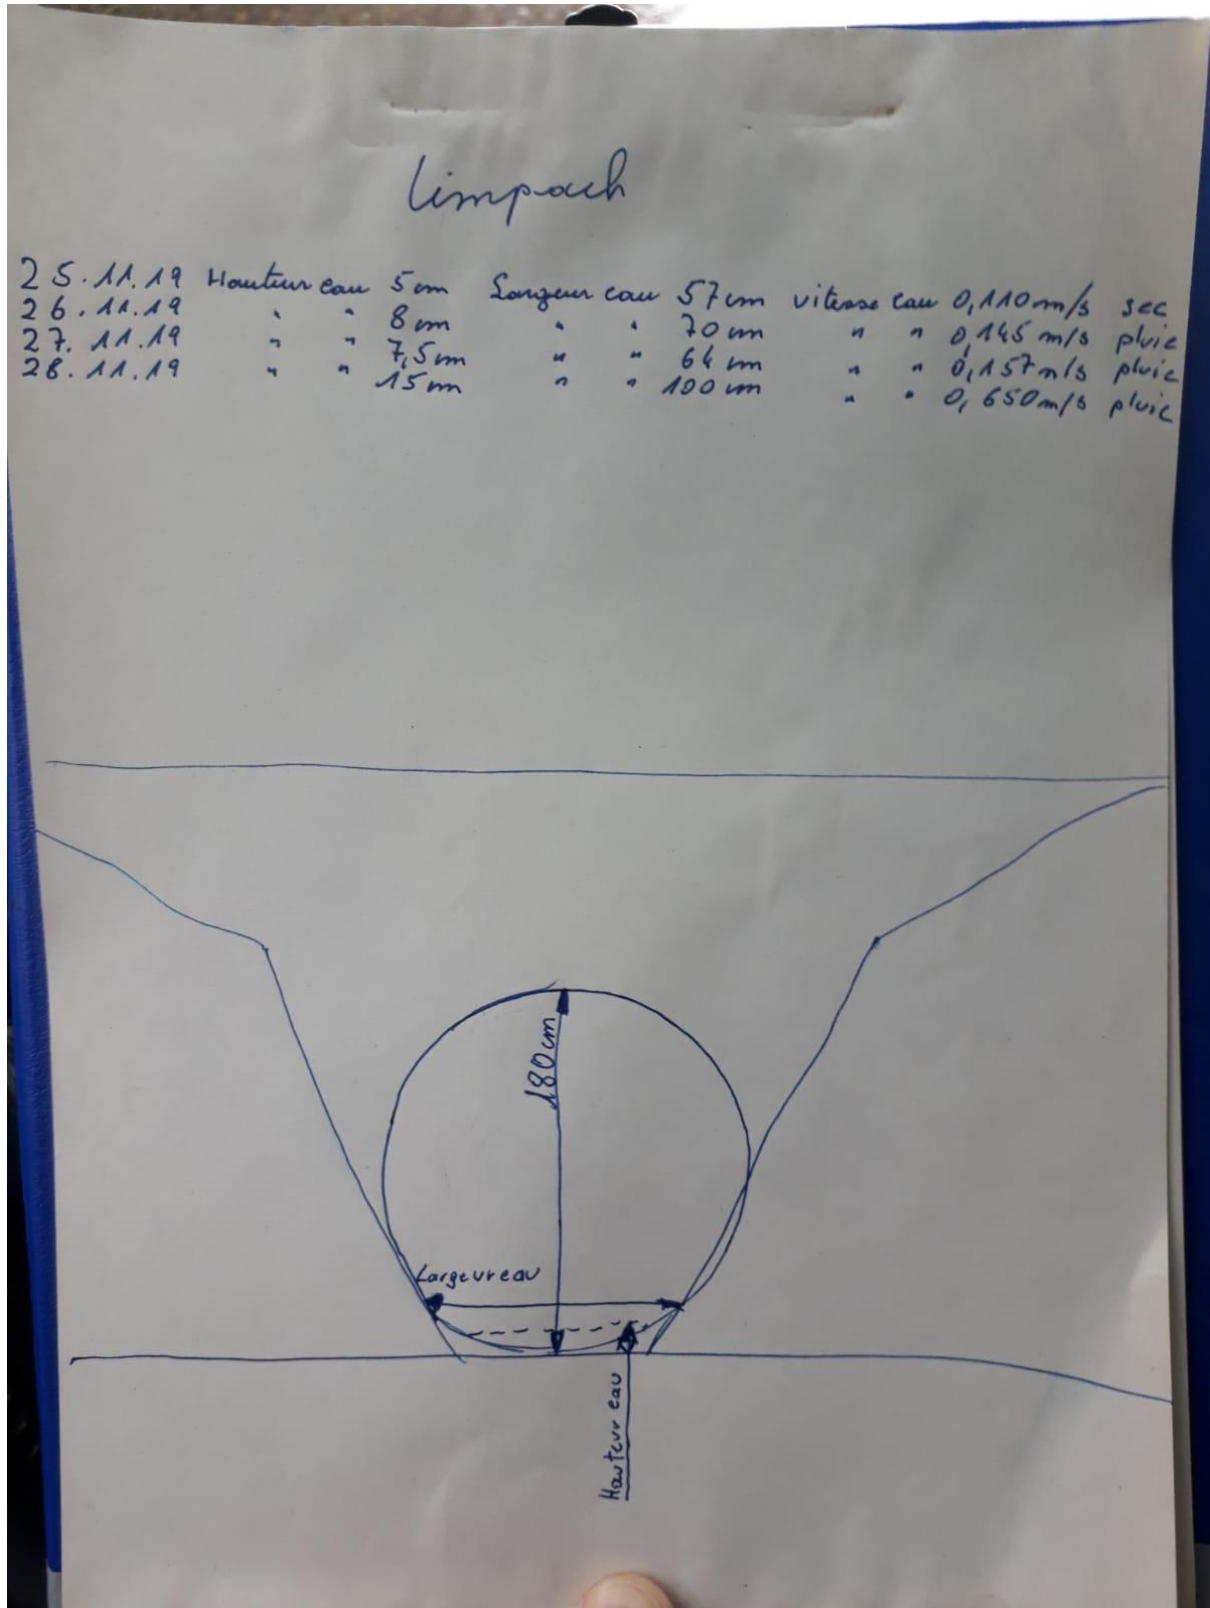 Limpach
25.11.19 Hauteur eau 5cm Largeur eau 57cm vitesse eau 0,110m/s sec
26.11.19 " " 8cm " " 70cm " " 0,145 m/s pluie
27.11.19 " " 7,5cm " " 64cm " " 0,157m/s pluie
28.11.19 " " 15cm " " 100cm " " 0,650m/s pluie
180cm
Largeur eau
Hauteur eau